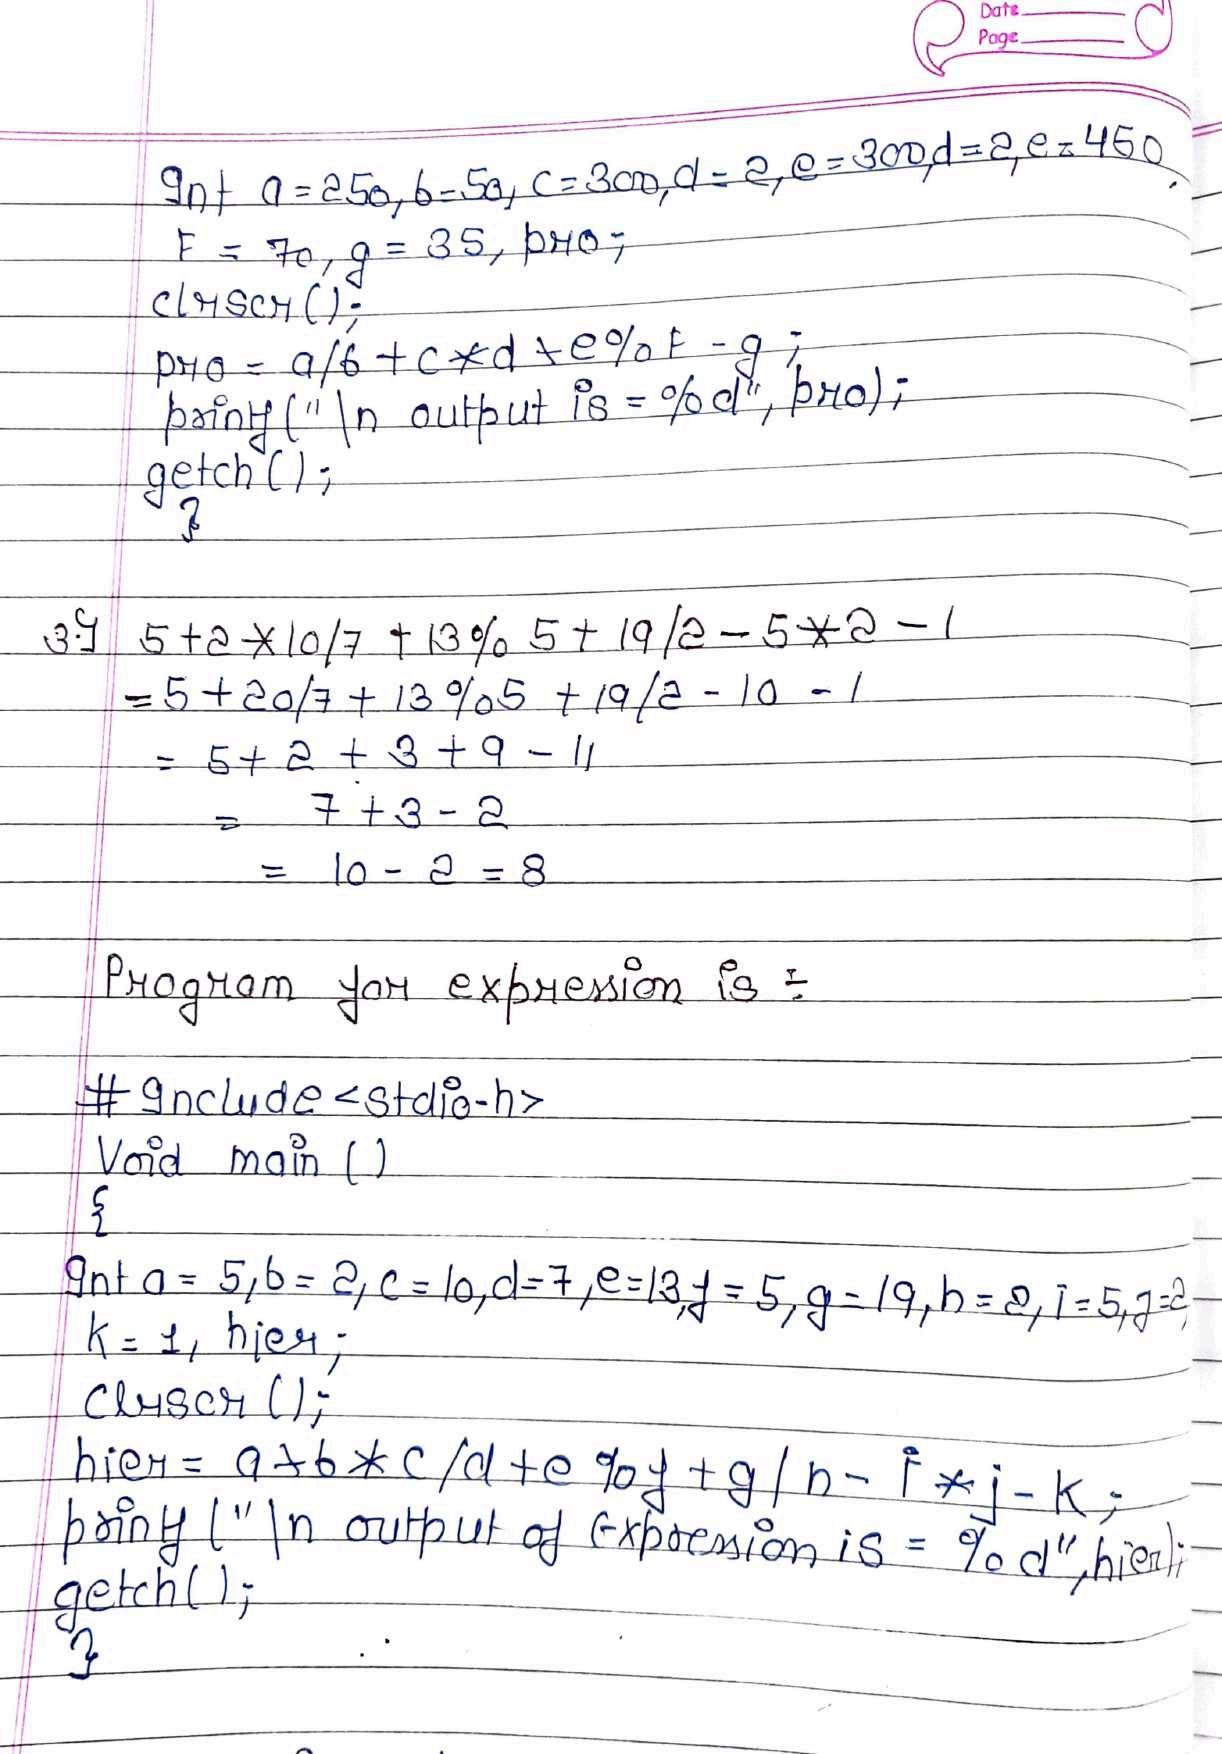 Date
Page
Int a=250, b=50, c=300, d=2, e=300, d=2, e=450,
F = 70, g = 35, pro;
clrscr();
pro = a/b + c*d + e%F - g;
printf("\n output is = %d", pro);
getch();
}
3.) 5+2*10/7 + 13% 5 + 19/2 - 5*2 - 1
= 5 + 20/7 + 13%5 + 19/2 - 10 - 1
= 5 + 2 + 3 + 9 - 11
= 7 + 3 - 2
= 10 - 2 = 8
Program for expression is ÷
# Include <stdio.h>
Void main ()
{
Int a = 5, b = 2, c = 10, d = 7, e = 13, f = 5, g = 19, h = 2, i = 5, j = 2,
K = 1, hier;
Clrscr ();
hier = a+b*c/d+e%f+g/h- i*j-K;
printf ("\n output of Expression is = %d", hier);
getch();
}